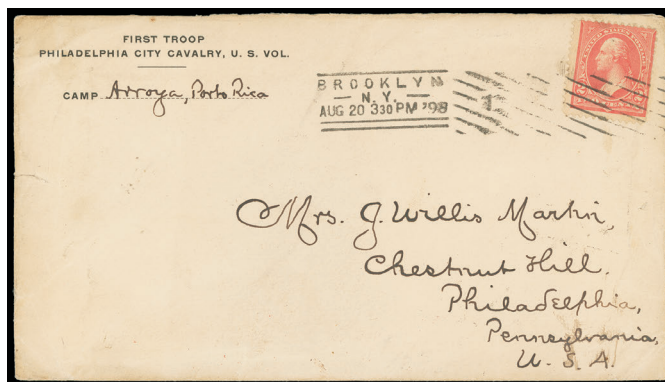 FIRST TROOP
PHILADELPHIA CITY CAVALRY, U. S. VOL.
CAMP Arroya, Porto Rico
BROOKLYN
N.Y.
AUG 20 330 PM '98
1
Mrs. J. Willis Martin,
Chestnut Hill.
Philadelphia,
Pennsylvania,
U. S. A.